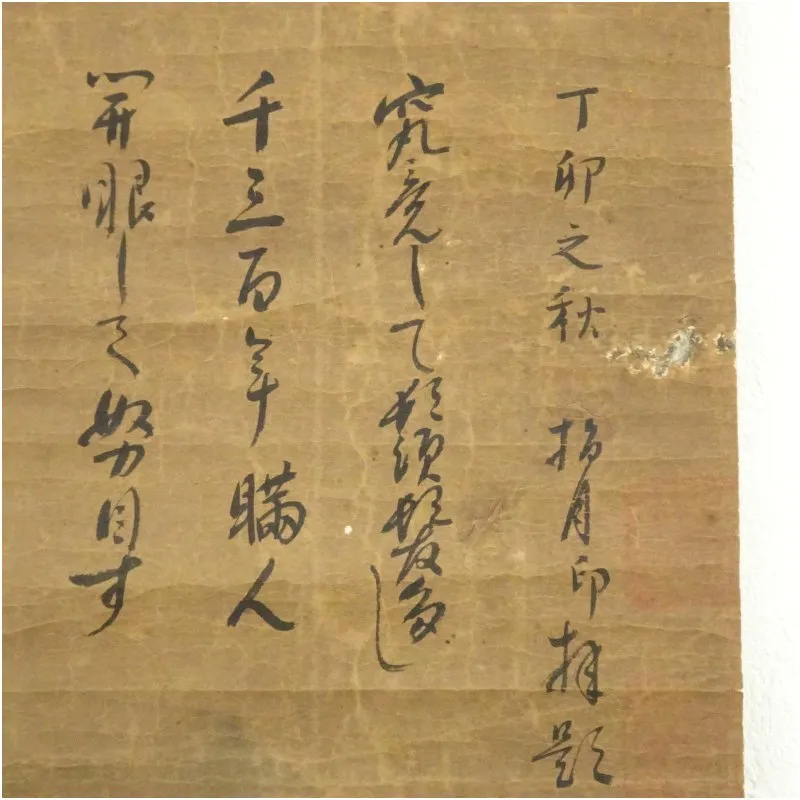 開眼して努目す
千三百年瞞人
究竟して鬚髪多し
丁卯之秋 指月印拝題